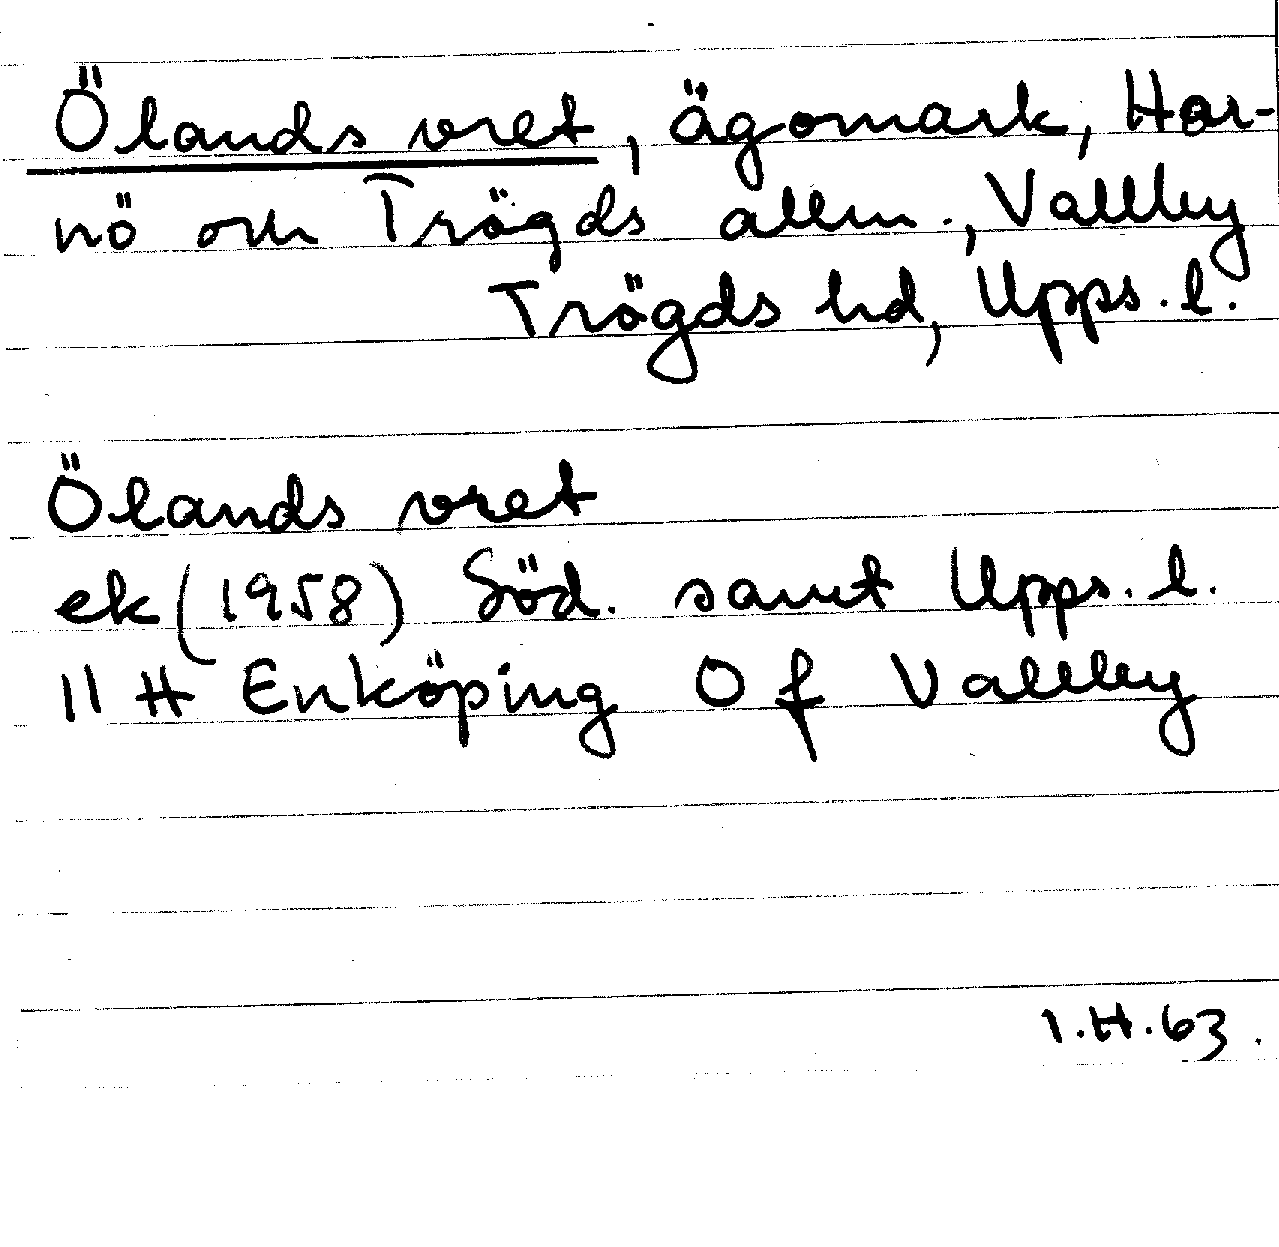 Ölands vret, ägomark, Har-
nö och Trögds allm., Vallby
Trögds hd, Upps. l.
Ölands vret
ek (1958) Söd. samt Upps. l.
11 H Enköping 0 f Vallby
I.H.63.